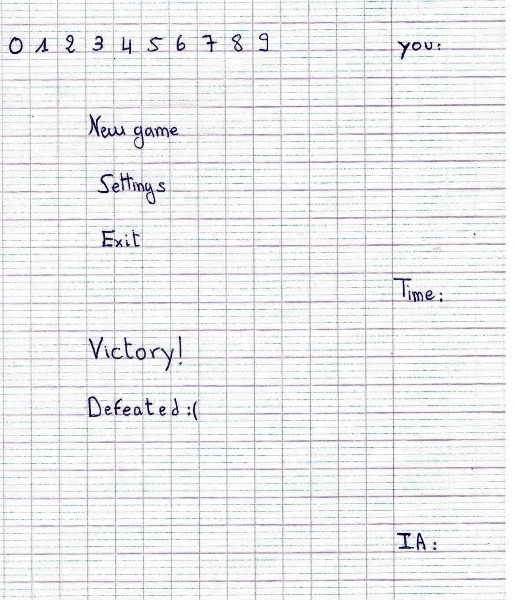 0 1 2 3 4 5 6 7 8 9
you:
New game
Settings
Exit
Time:
Victory!
Defeated :(
IA: